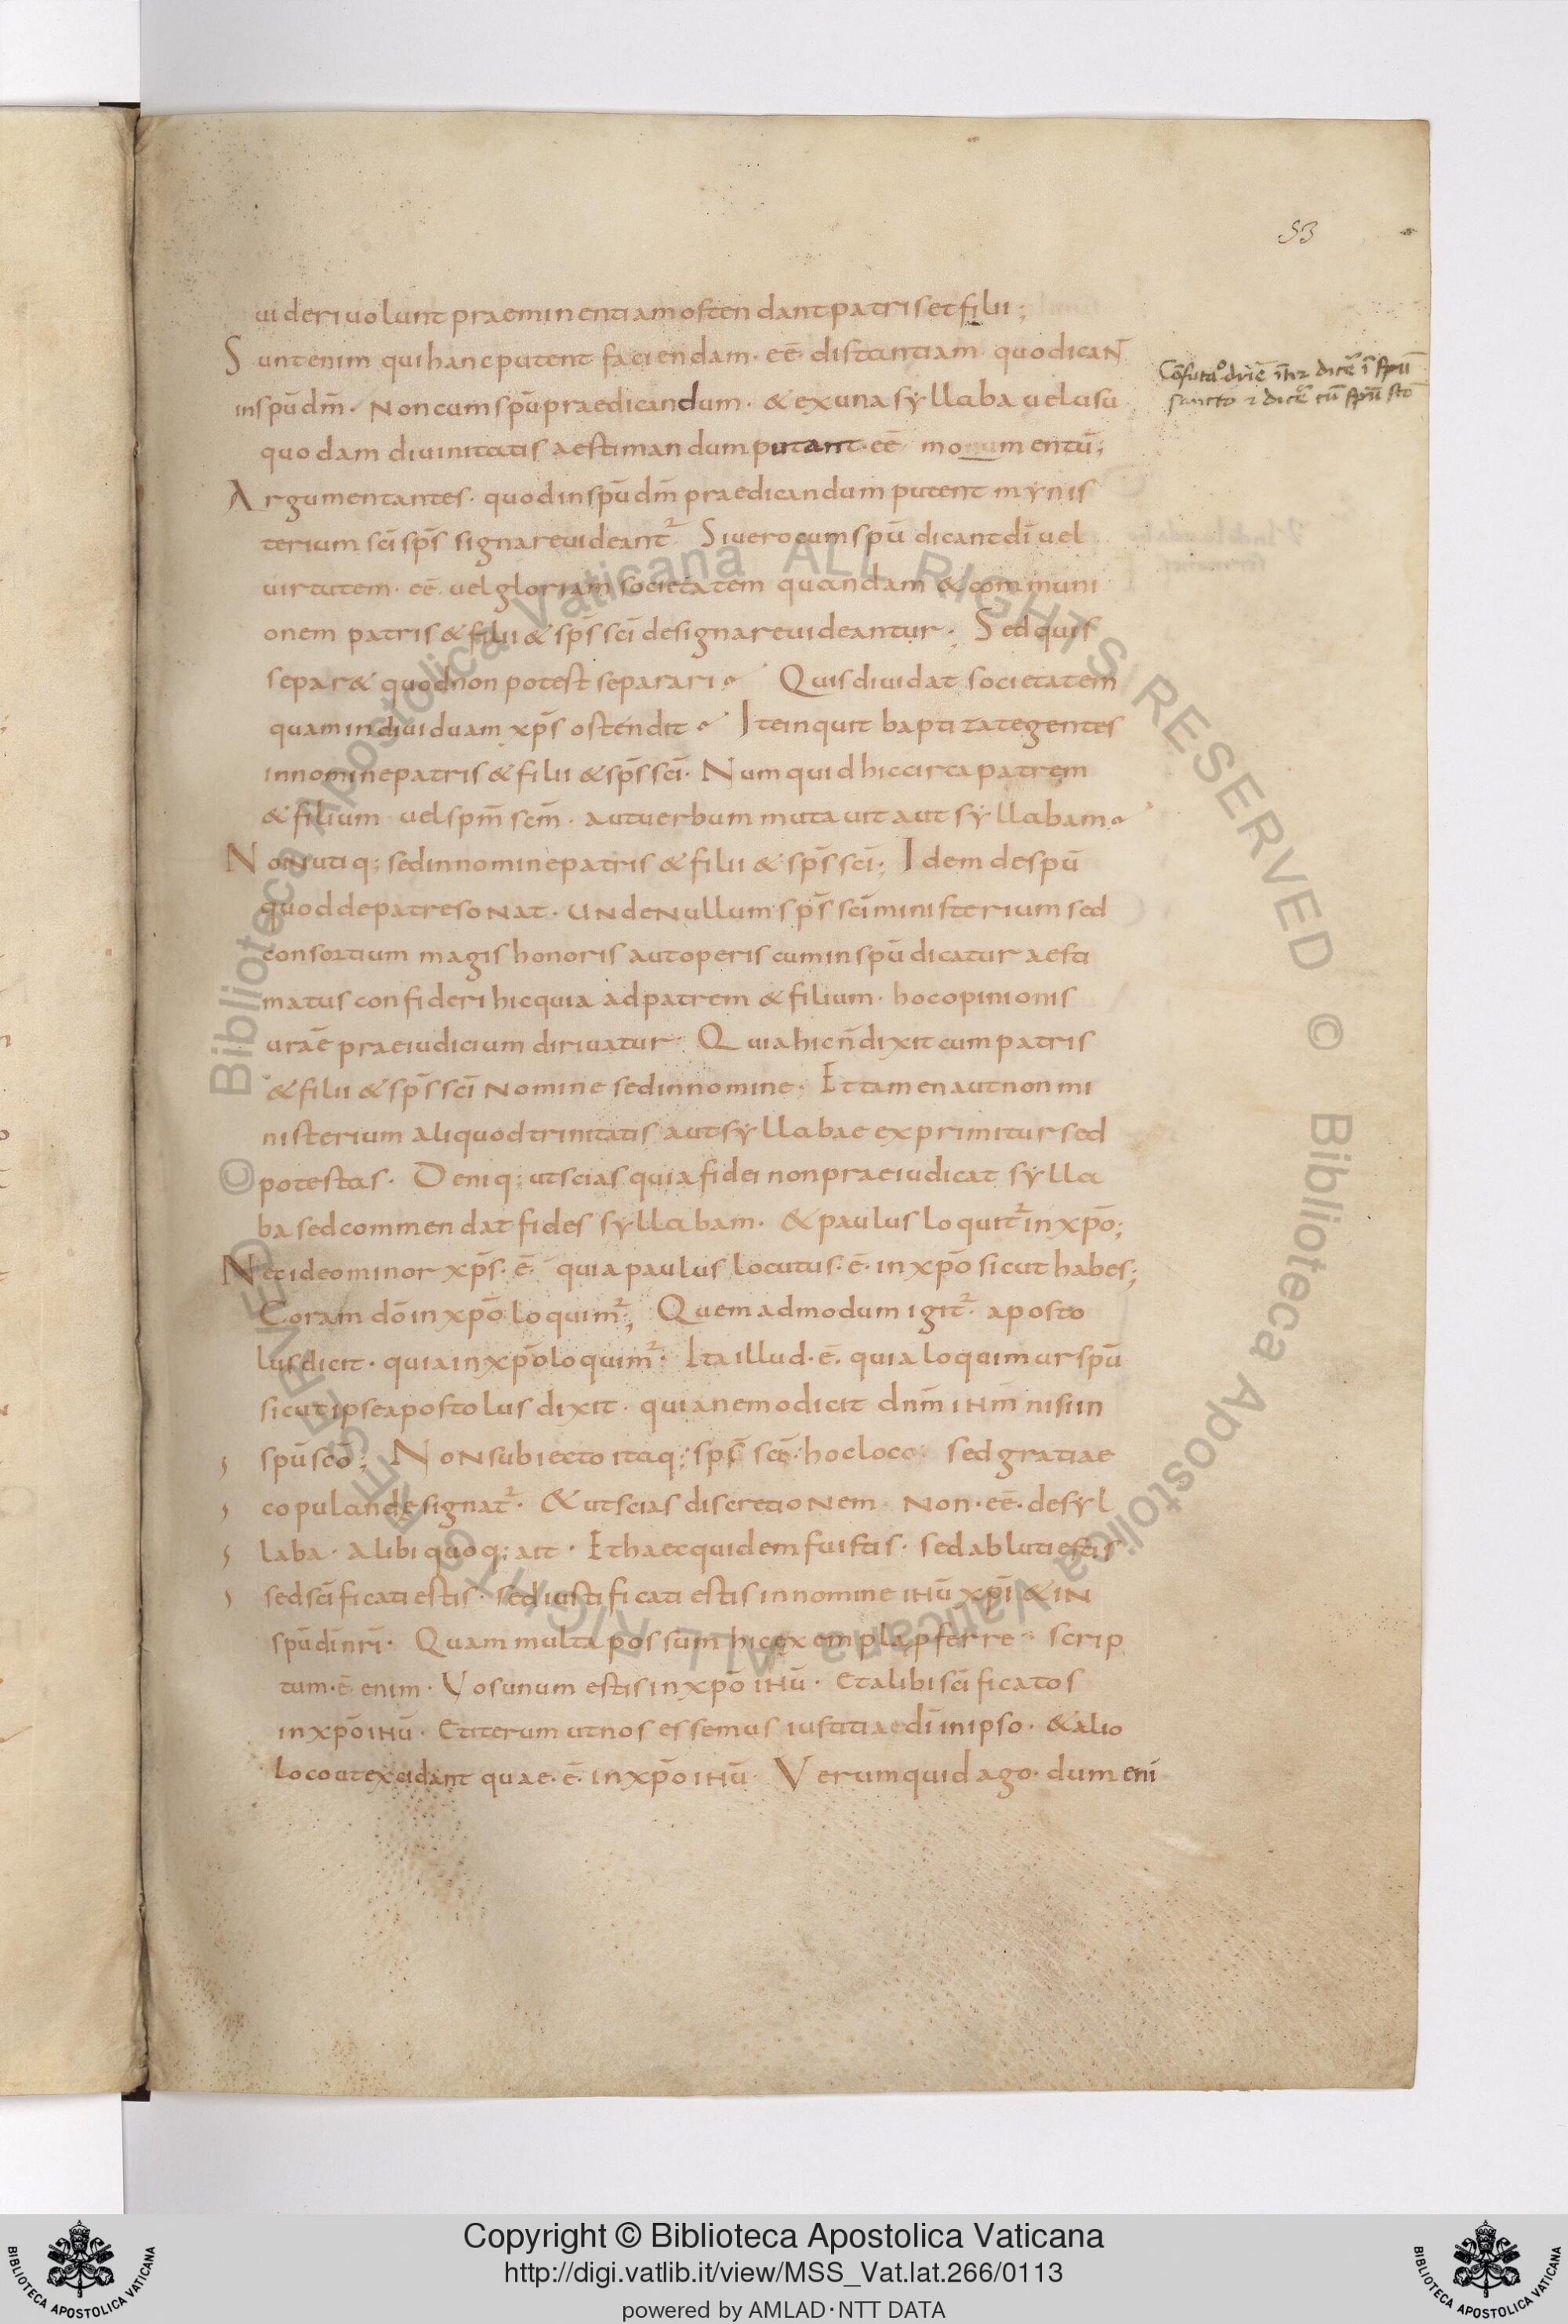 53
uideriuolunt praeminentiam ostendant patris et filii;
Sunt enim qui hanc putent faciendam· eē distantiam quodicaN̄
inspū dm̄· Non cum spū praedicandum· & ex una syllaba uel usu
quodam diuinitatis aestimandum putant· eē monumentū;
Argumentantes· quod in spū dm̄ praedicandum putent mynis
terium sc̄i sp̄s signare uideant² Si uero cum spū dicant dī uel
uirtutem· eē uel gloriam societatem quandam & communi
onem patris & filii & sp̄s sc̄i designare uideantur· Sed quis
separ& quod non potest separari Quis diuidat societatem
quam indiuiduam xp̄s ostendit Ite inquit baptizate gentes
in nomine patris & filii & sp̄s sc̄i· Numquid hic circa patrem
& filium uel spm̄ scm̄· aut uerbum mutauit aut syllabam
Non utiq; sed in nomine patris & filii & sp̄s sc̄i; Idem de spū
quod de patre soNat· UNde Nullum sp̄s sc̄i ministerium sed
consortium magis honoris aut operis cum in spū dicatur aesti
matus confideri hic quia ad patrem & filium· hoc opinionis
urāe praeiudicium diriuatur· Quia hic n̄ dixit cum patris
& filii & sp̄s sc̄i Nomine sed in nomine· Et tamen aut non mi
nisterium aliquod trinitatis aut syllabae exprimitur sed
potestas· Deniq; ut scias quia fidei non praeiudicat sylla
ba sed commendat fides syllabam· & paulus loquit² in xp̄o;
Nec ideo minor xp̄s· ē· quia paulus locutus· ē· in xp̄o sicut habes;
Coram dō in xp̄o loquim²; Quemadmodum igit²· aposto
lus dicit· quia in xp̄o loquim²· Ita illud· ē· quia loquimur spū
sicut ipse apostolus dixit· quia nemo dicit dnm̄ ihm̄ nisi in
spū scō; NoN subiecto itaq; sp̄s sc̄ē· hoc loco· sed gratiae
copulan designat²· & ut scias discretioNem· Non· eē· de syl
laba· Alibi quoq; ait· Et haec quidem fuistis· sed abluti estis
sed sc̄ificati estis· sed iustificati estis in nomine ihū xp̄i & iN
spū dī nrī· Quam multa possum hic exempla pferre· scrip
tum· ē· enim· Vos unum estis in xp̄o ihū· Et alibi sc̄ificatos
in xp̄o ihū· Et iterum ut nos essemus iustitiae dī in ipso· & alio
loco ut excidant quae· ē· in xp̄o ihū· Verum quid ago· dum eni
Copyright © Biblioteca Apostolica Vaticana
http://digi.vatlib.it/view/MSS_Vat.lat.266/0113
powered by AMLAD·NTT DATA
BIBLIOTECA APOSTOLICA VATICANA
BIBLIOTECA APOSTOLICA VATICANA
© Biblioteca Apostolica Vaticana ALL RIGHTS RESERVED © Biblioteca Apostolica Vaticana ALL RIGHTS RESERVED